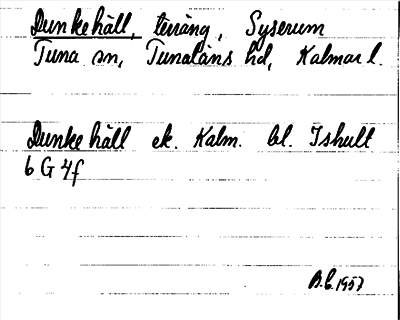 Dunkehäll, terräng, Syserum
Tuna sn, Tunaläns hd, Kalmar l.
Dunkehäll ek. Kalm. bl. Ishult
6 G 4f
1957